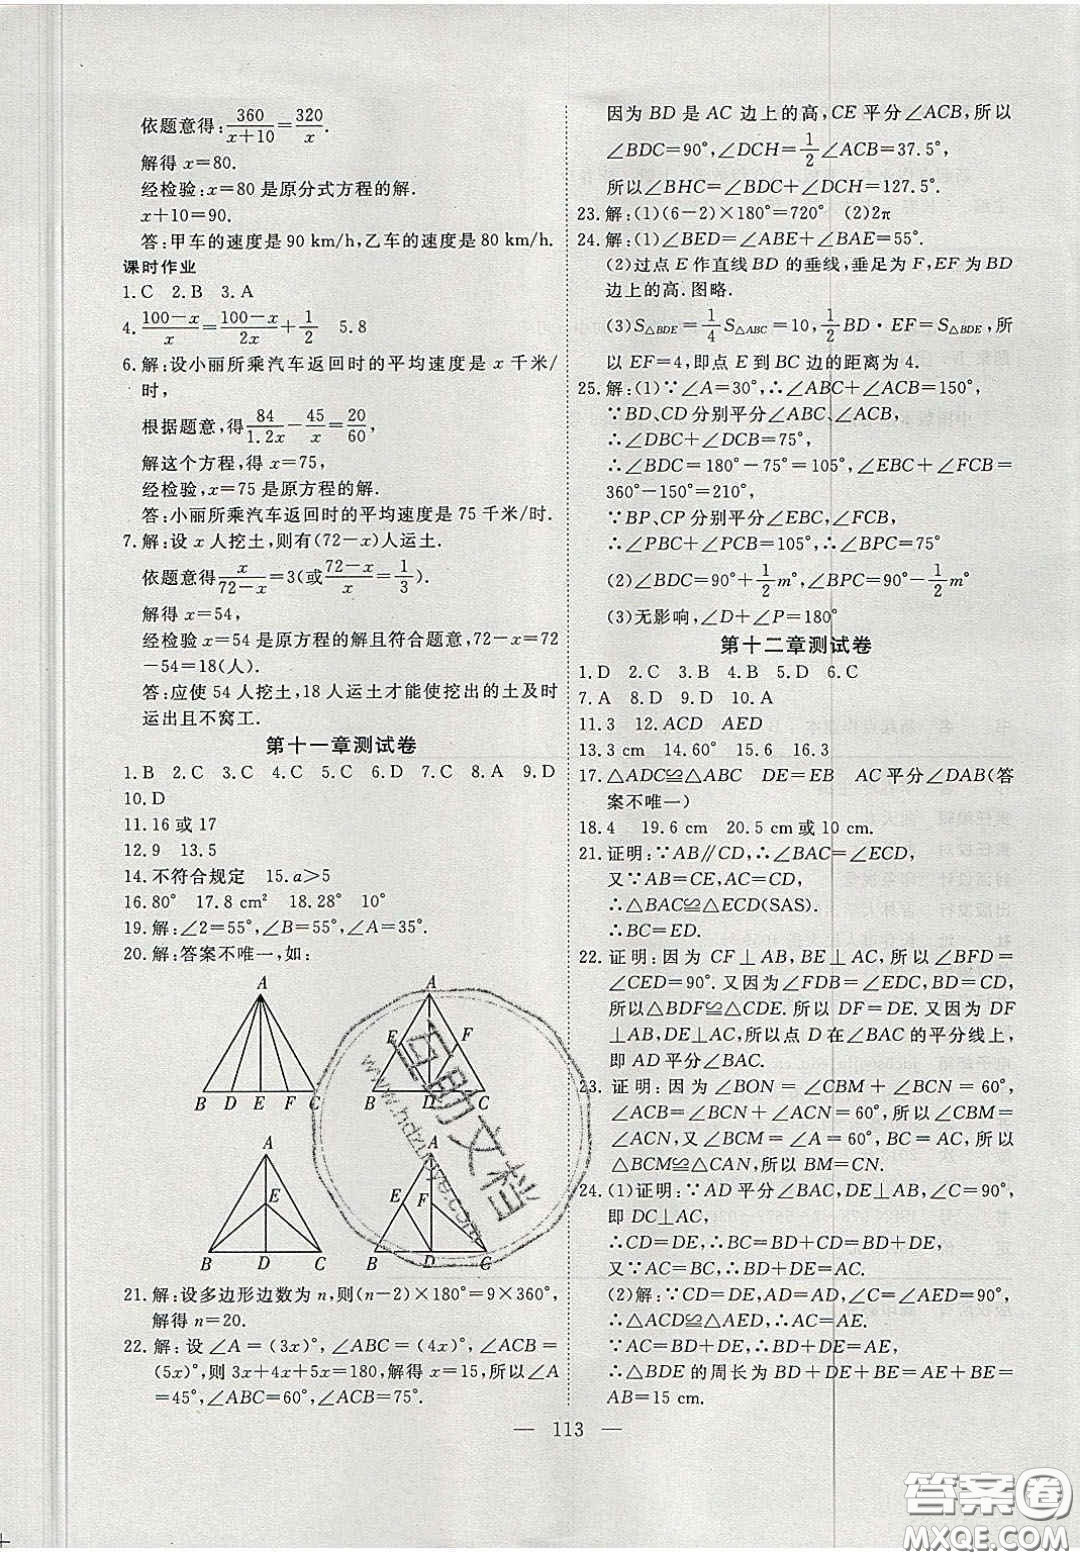 依题意得:360/(x+10)=320/x.
解得 x=80.
经检验:x=80 是原分式方程的解.
x+10=90.
答:甲车的速度是 90 km/h,乙车的速度是 80 km/h.
课时作业
1.C 2.B 3.A
4.(100-x)/x=(100-x)/2x+1/2 5.8
6.解:设小丽所乘汽车返回时的平均速度是 x 千米/
时,
根据题意,得 84/1.2x-45/x=20/60,
解这个方程,得 x=75,
经检验,x=75 是原方程的解.
答:小丽所乘汽车返回时的平均速度是 75 千米/时.
7.解:设 x 人挖土,则有(72-x)人运土.
依题意得 x/(72-x)=3(或(72-x)/x=1/3).
解得 x=54,
经检验 x=54 是原方程的解且符合题意,72-x=72
-54=18(人).
答:应使 54 人挖土,18 人运土才能使挖出的土及时
运出且不窝工.
第十一章测试卷
1.B 2.C 3.C 4.C 5.C 6.D 7.C 8.A 9.D
10.D
11.16 或 17
12.9 13.5
14.不符合规定 15.a>5
16.80° 17.8 cm² 18.28° 10°
19.解:∠2=55°,∠B=55°,∠A=35°.
20.解:答案不唯一,如:
A
B D E F C
A
E F
B D C
A
E
B D C
A
E F
B D C
21.解:设多边形边数为 n,则(n-2)×180°=9×360°,
解得 n=20.
22.解:设∠A=(3x)°,∠ABC=(4x)°,∠ACB=
(5x)°,则 3x+4x+5x=180,解得 x=15,所以∠A
=45°,∠ABC=60°,∠ACB=75°.
因为 BD 是 AC 边上的高,CE 平分∠ACB,所以
∠BDC=90°,∠DCH=1/2∠ACB=37.5°,
所以∠BHC=∠BDC+∠DCH=127.5°.
23.解:(1)(6-2)×180°=720° (2)2π
24.解:(1)∠BED=∠ABE+∠BAE=55°.
(2)过点 E 作直线 BD 的垂线,垂足为 F,EF 为 BD
边上的高.图略.
(3)S△BDE=1/4S△ABC=10,1/2BD·EF=S△BDE,所
以 EF=4,即点 E 到 BC 边的距离为 4.
25.解:(1)∵∠A=30°,∴∠ABC+∠ACB=150°,
∵BD、CD 分别平分∠ABC、∠ACB,
∴∠DBC+∠DCB=75°,
∴∠BDC=180°-75°=105°,∠EBC+∠FCB=
360°-150°=210°,
∵BP、CP 分别平分∠EBC,∠FCB,
∴∠PBC+∠PCB=105°,∴∠BPC=75°
(2)∠BDC=90°+1/2m°,∠BPC=90°-1/2m°
(3)无影响,∠D+∠P=180°
第十二章测试卷
1.D 2.C 3.B 4.B 5.D 6.C
7.A 8.D 9.D 10.A
11.3 12.ACD AED
13.3 cm 14.60° 15.6 16.3
17.△ADC≌△ABC DE=EB AC 平分∠DAB(答
案不唯一)
18.4 19.6 cm 20.5 cm 或 10 cm.
21.证明:∵AB∥CD,∴∠BAC=∠ECD,
又∵AB=CE,AC=CD,
∴△BAC≌△ECD(SAS).
∴BC=ED.
22.证明:因为 CF⊥AB,BE⊥AC,所以∠BFD=
∠CED=90°.又因为∠FDB=∠EDC,BD=CD,
所以△BDF≌△CDE.所以 DF=DE.又因为 DF
⊥AB,DE⊥AC,所以点 D 在∠BAC 的平分线上,
即 AD 平分∠BAC.
23.证明:因为∠BON=∠CBM+∠BCN=60°,
∠ACB=∠BCN+∠ACN=60°,所以∠CBM=
∠ACN,又∠BCM=∠A=60°,BC=AC,所以
△BCM≌△CAN,所以 BM=CN.
24.(1)证明:∵AD 平分∠BAC,DE⊥AB,∠C=90°,
即 DC⊥AC,
∴CD=DE,∴BC=BD+CD=BD+DE,
又∵AC=BC,∴BD+DE=AC.
(2)解:∵CD=DE,AD=AD,∠C=∠AED=90°,
∴△ACD≌△AED,∴AC=AE.
∵AC=BD+DE,∴AE=BD+DE,
∴△BDE 的周长为 BD+DE+BE=AE+BE=
AB=15 cm.
— 113 —
互助文档
www.hdzuoye.com
答案圈
MXQE.COM